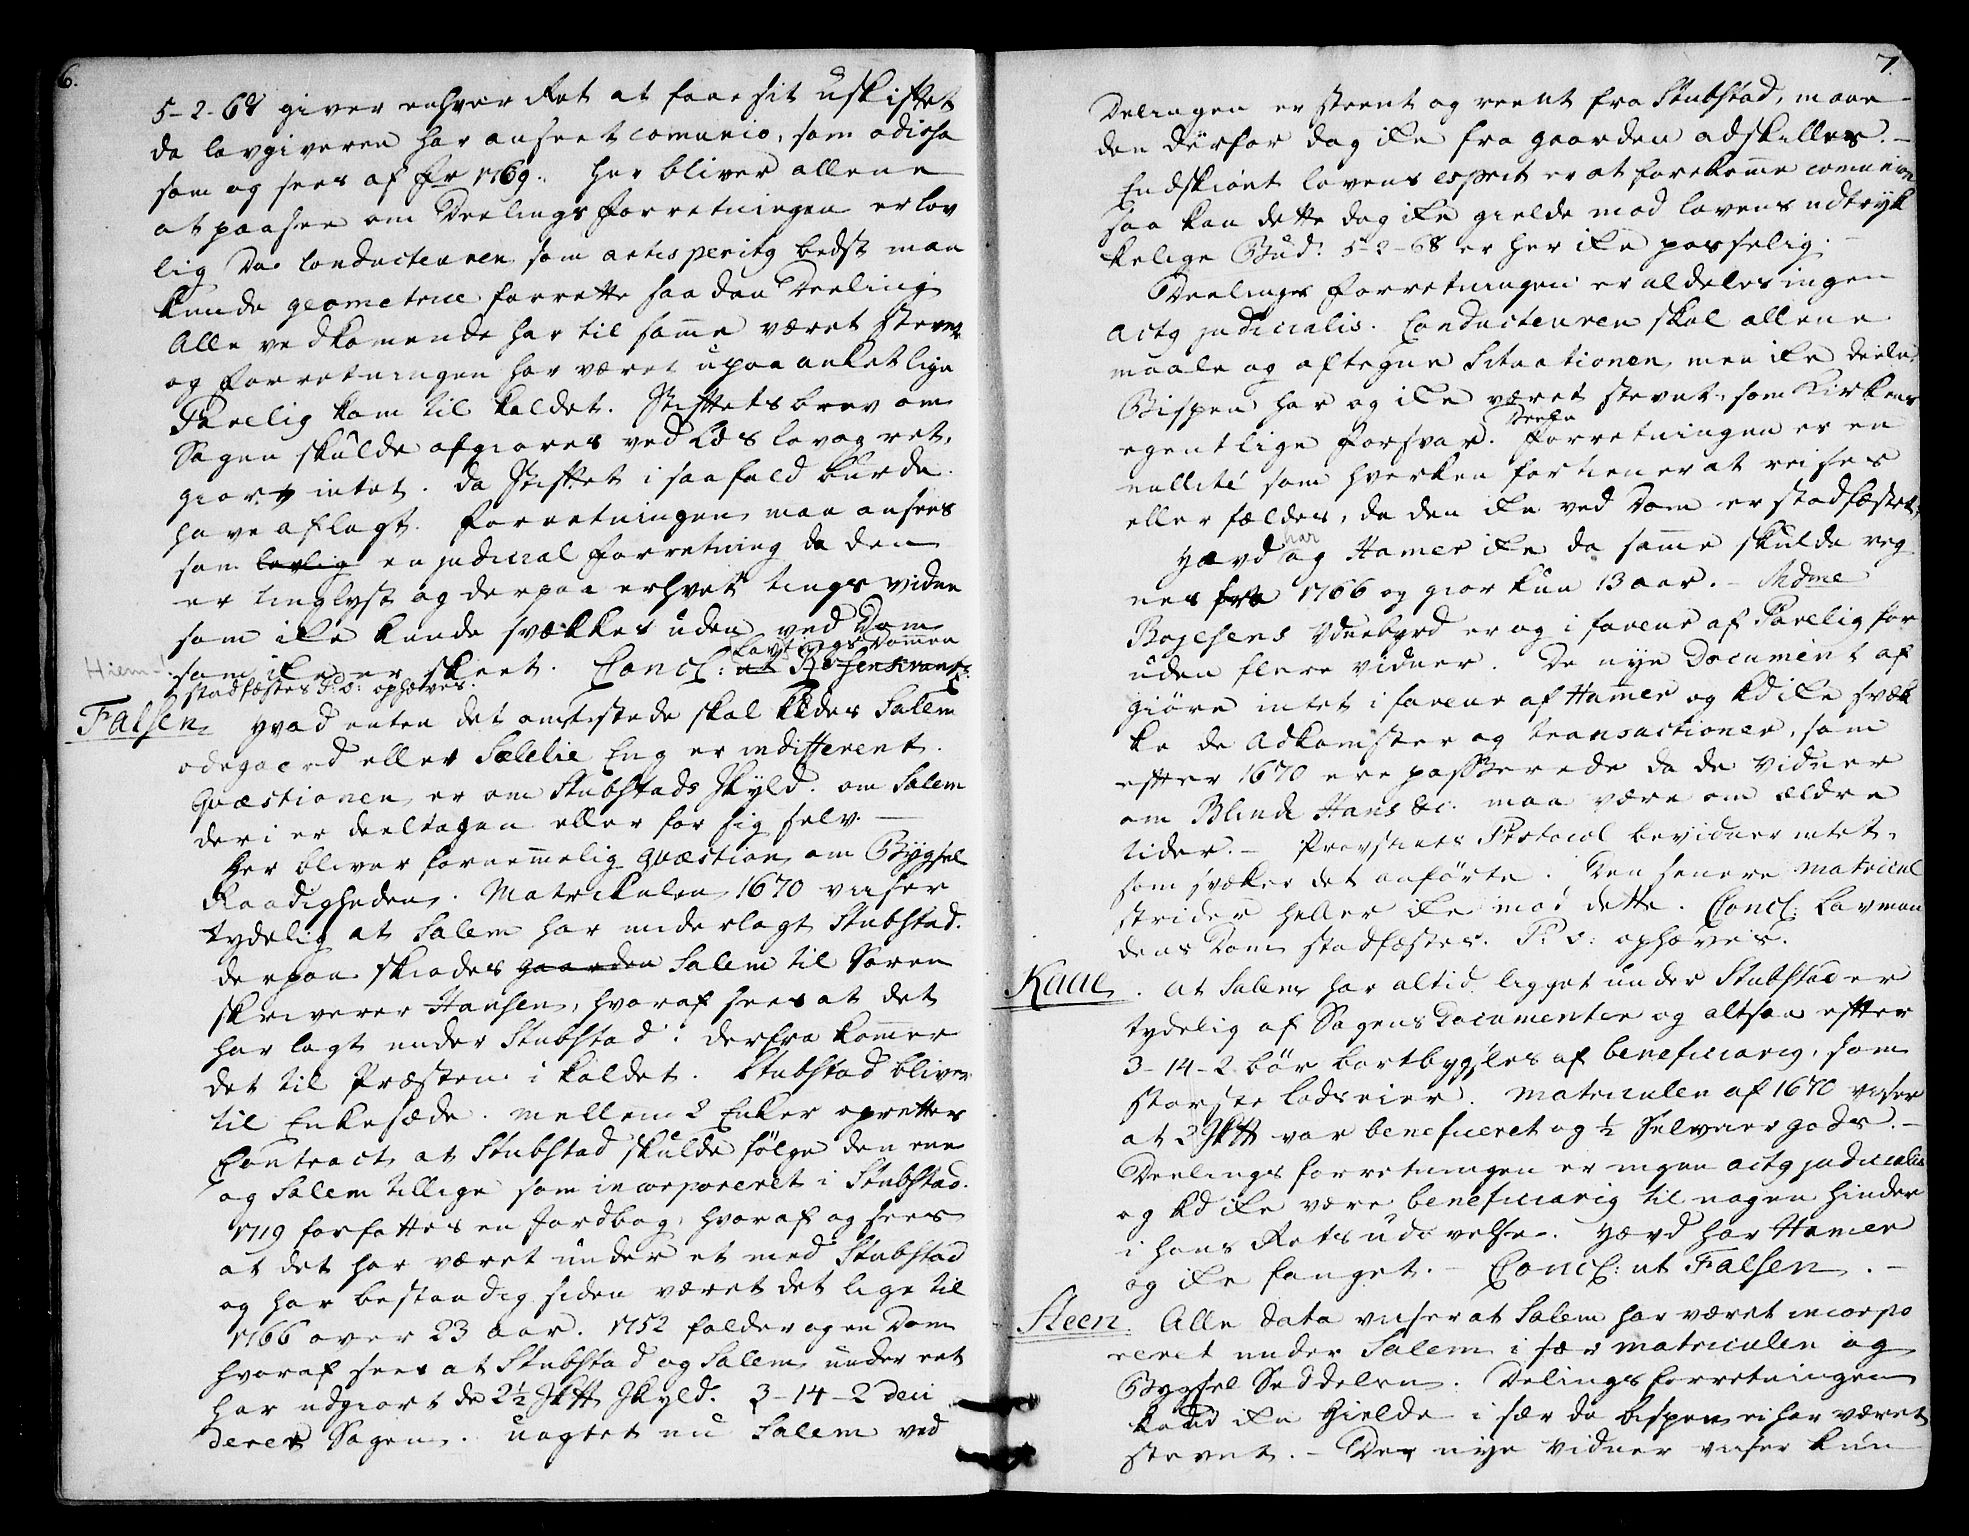 6.
5-2-68 giver enhver Ret at faae sit uskiftet
da lovgiveren har anseet comunio, som odiosa
som og sees af fr 1769. her bliver allene
at paasee om Deelings forretningen er lov
lig Da Conducteuren som artis peritg bedst man
kunde geometrice forrette saadan Deeling
Alle vedkomende har til same været stevnet
og forretningen har været upaaanket lige
Parelig kom til kaldet. Stiftets brev om
Sagen skulde afgiøres ved Lds lov og ret,
giør intet. da Stiftet i saafald burde
have aflagt. forretningen maa ansees
som lovlig en judicial forretning da den
er tinglyst og derpaa erhvt tingsvidne
som ike kunde svækkes uden ved Dom
som ike er skeet. Concl: ut Rosenkrantz: Lavtings Dommen
Hiem-!
stadfæstes P: o: ophæves.
Falsen hvad enten det omtvistede skal kldes Salem
ødegaard eller Sælelie Eng er indifferent.
Qvæstionen er om Stubstads Skyld. om Salem
deri er deeltagen eller for sig selv. —
Her bliver fornemmelig qvæstion om Bygsel
Raadigheden. Matrikulen 1670 viser
tydelig at Salem har underlagt Stubstad.
derpaa skiødes gaarden Salem til Søren
skriverer Hansen, hvoraf sees at det
har lagt under Stubstad. derfra kommer
det til Præsten i kaldet. Stubstad bliver
til Enkesæde. mellem 2 Enker oprettes
Contract at Stubstad skulde følge den ene
og Salem tillige som incorporeret i Stubstad.
1719 forfattes en Jordbog, hvoraf og sees
at det har været under et med Stubstad
og har bestandig siden været det lige til
1766 over 23 aar. 1752 falder og en Dom
hvoraf sees at Stubstad og Salem under eet
har udgiort de 2½ Sktt Skyld. 3-14-2 deci
derer Sagen. uagtet nu Salem ved
7.
Delingen er steent og reent fra Stubstad, maae
den derfor dog ike fra gaarden adskilles. —
Endskiønt lovens esprit er at forekomme comunion
saa kan dette dog ike gielde mod lovens udtryk
kelige Bud: 5-2-68 er her ike passelig. —
Deelings forretningen er aldeles ingen
actg judicialis. Conducteuren skal allene
maale og aftegne Situationen men ike deele.
Bispen har og ike været stevnt, som Kirkens
egentlige forsvar. Deelin forretningen er en
nullité som hverken fortiener at reises
eller fældes, da den ike ved Dom er stadfæstet.
Hævd har og Hamer ike da samme skulde reg
nes fra 1766 og giør kun 13 aar. — Mdme
Bojesens Vdnebyrd er og i faveur af Parelig for
uden flere vidner. De nye Document af
giøre intet i faveur af Hamer og kd ike svæk
ke de Adkomster og transactioner, som
efter 1670 ere passerede da de vidner
om Blinde Hans &c. maa være om ældre
tider. — Provstiets Protocol bevidner intet,
som svæker det anførte. Den senere matricul
strider heller ike mod dette. Concl: Lavman
dens Dom stadfæstes. P: o: ophæves.
Kaae. At Salem har altid ligget under Stubstad er
tydelig af Sagens Documenter og altsaa efter
3-14-2 bør bortbygsles af beneficiarig, som
største Lodseier. Matriculen af 1670 viser
at 2 Sktt var beneficeret og ½ Selveiergods. —
Deelings forretningen er ingen actg judicialis
og kd ike være beneficiarig til nogen hinder
i hans Rets udøvelse. Hævd har Hamer
og ike fanget. — Concl: ut Falsen. —
Steen. Alle data viser at Salem har været incorpo
reret under Salem i sær matriculen og
Bygsel Seddelen. Delings forretningen
kand ike Gielde i sær da bispen ei har været
stevnt. — De nye vidner viser kun